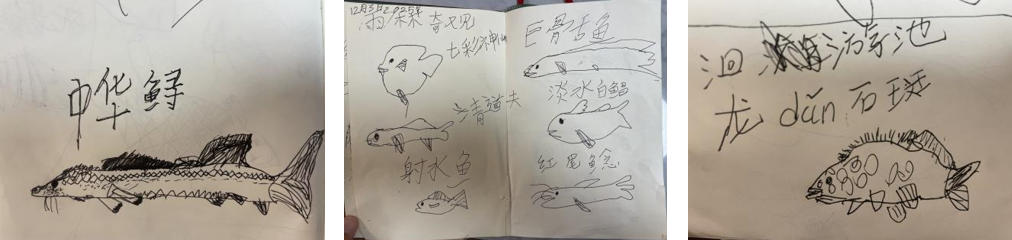 中华鲟
12月3日2025年
雨林奇见
七彩神仙
清道夫
射水鱼
巨骨舌鱼
淡水白鲳
红尾鲶
洄游池
龙dǎn石斑